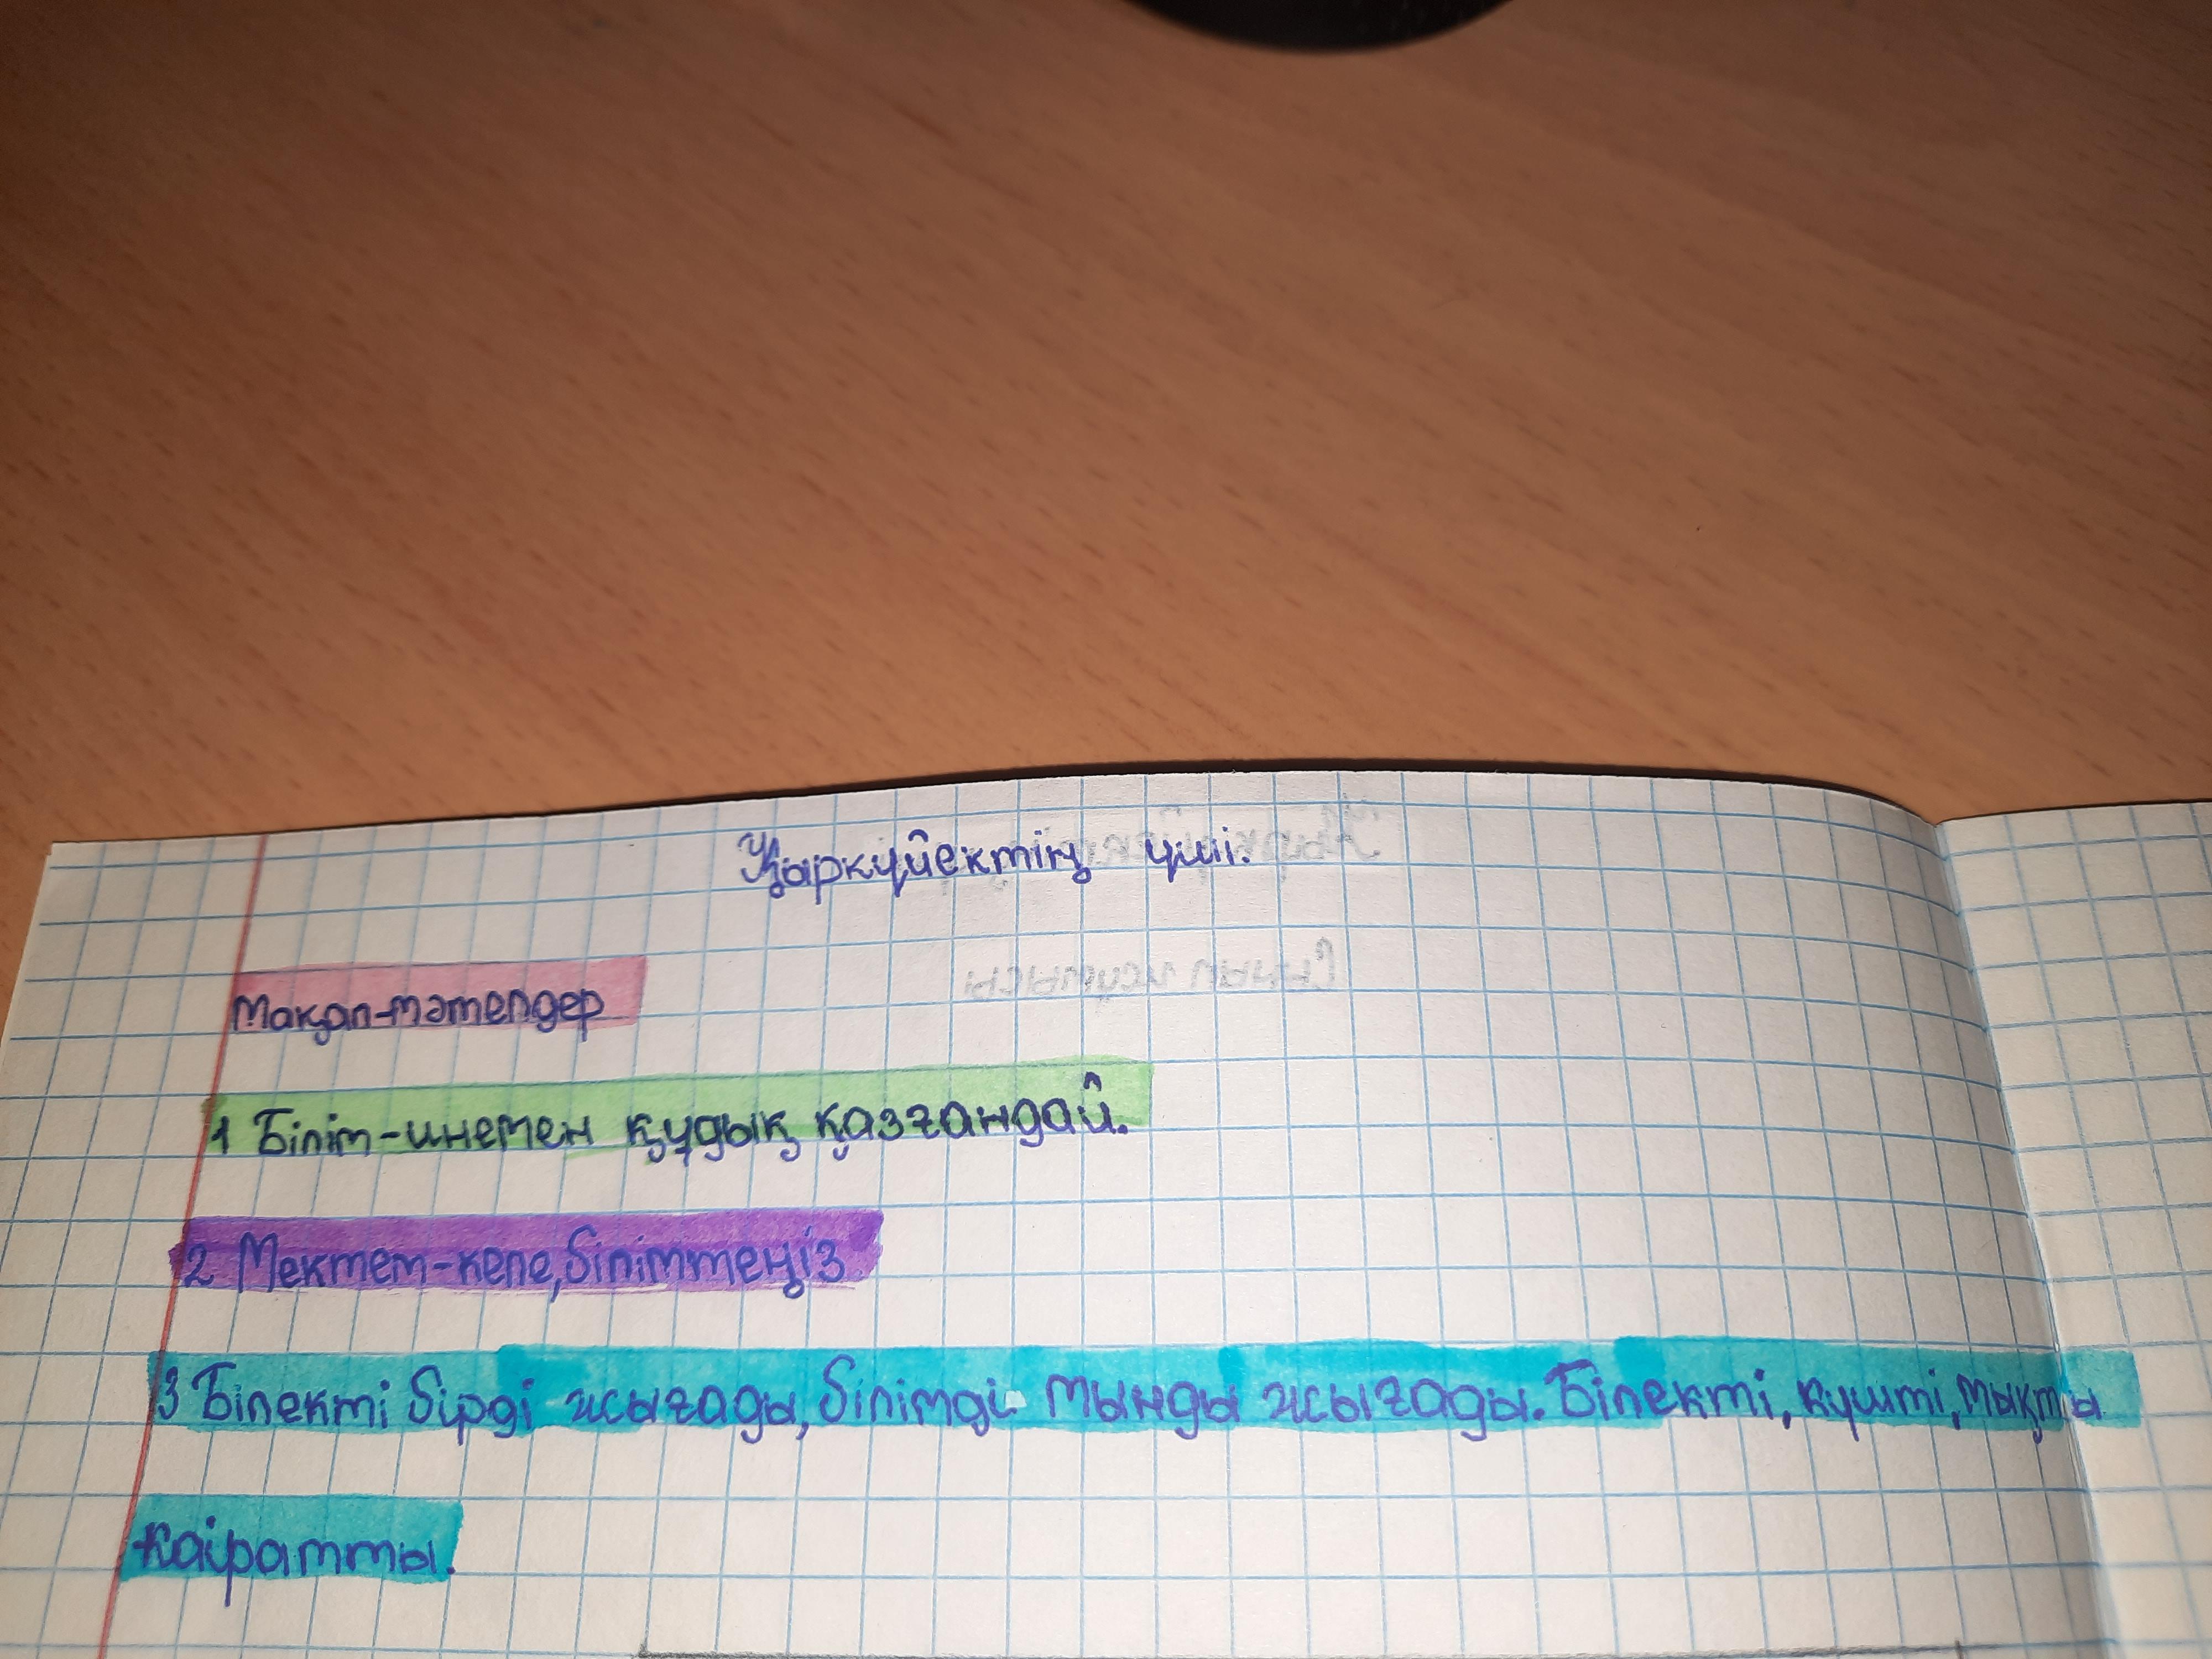 Қыркүйектің үші.
Мақал-мәтелдер
1 Білім-инемен құдық қазғандай.
2 Мектем-кеме, білімтеңіз
3 Білекті бірді жығады, білімді мыңды жығады. Білекті, күшті, мықты
қаіратты.